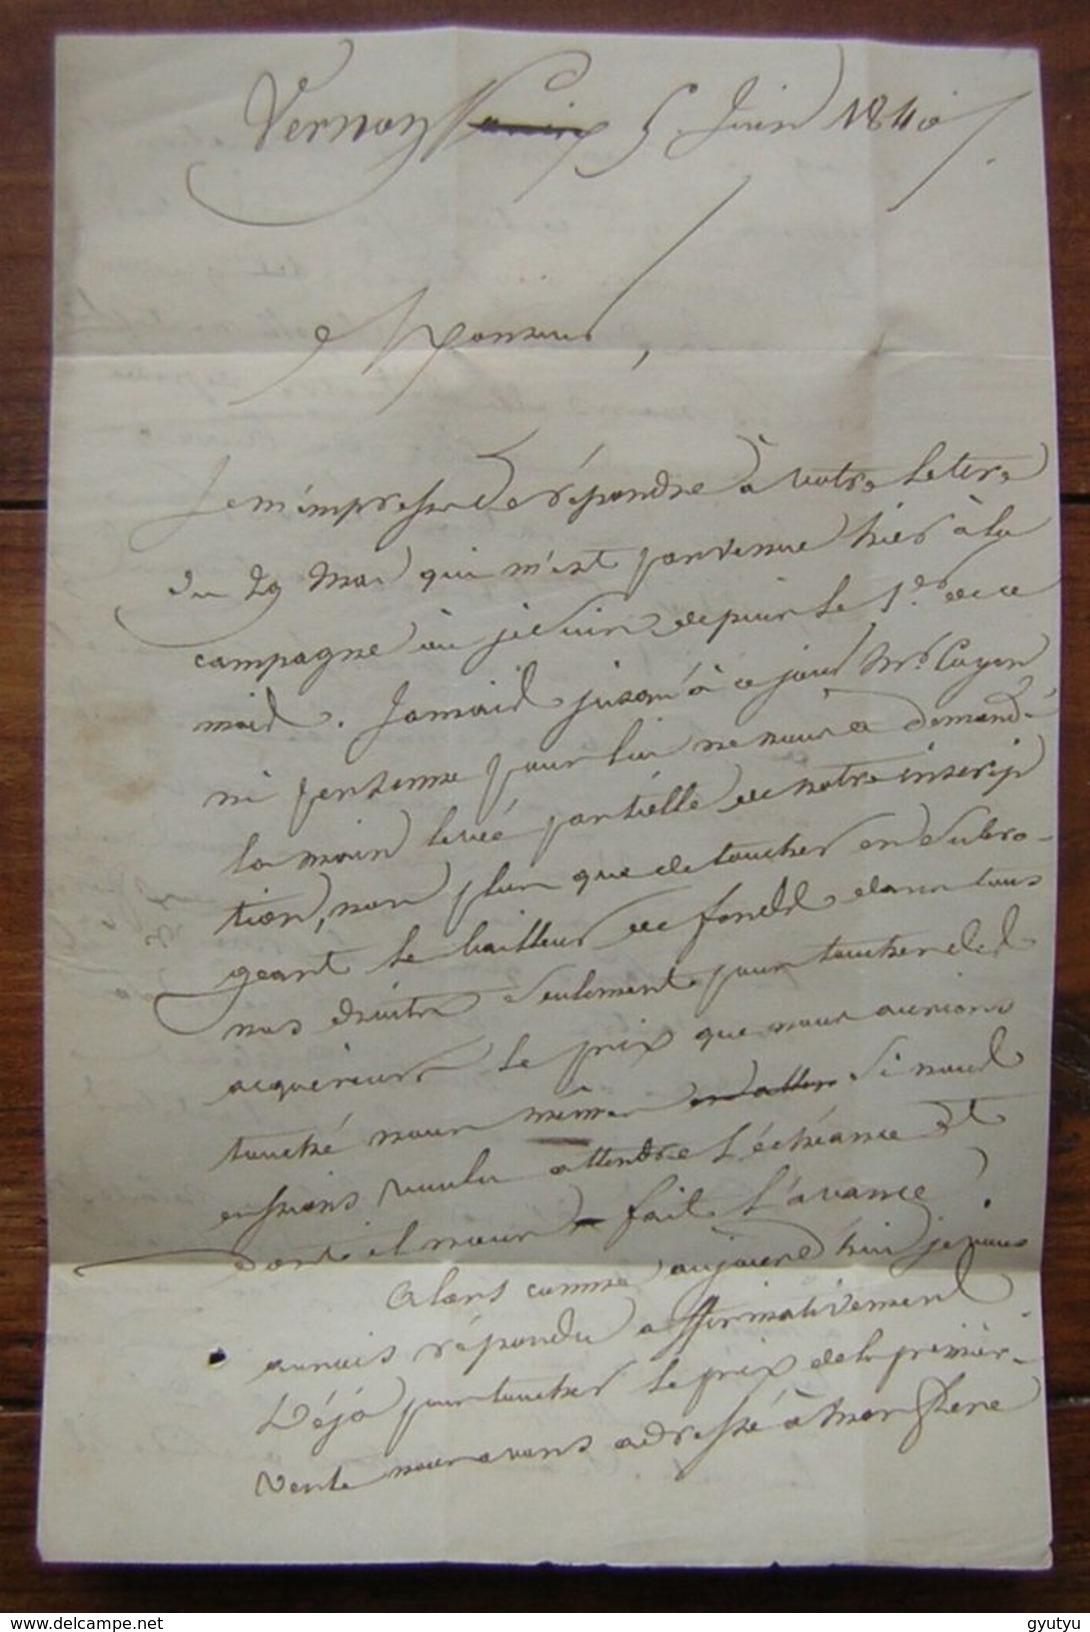 Vernon 5 Juin 1840
Monsieur,
Je m'empresse de répondre à votre lettre
du 29 Mai qui m'est parvenue hier à la
campagne où je suis depuis le 1er de ce
mois. Jamais jusqu'à ce jour Mr Cayen
ni personne pour lui ne nous a demandé
la main levée partielle de notre inscrip
tion, non plus que de toucher en subro-
geant le bailleur de fonds dans tous
nos droits seulement pour toucher des
acquéreurs le prix que nous aurions
touché nous même si nous
eussions voulu attendre l'échéance et
dont il nous fait l'avance.
Alors comme aujourd'hui je vous
aurais répondu affirmativement
Déjà pour toucher le prix de la premièr-
vente nous avons adressé à Mon frère
www.delcampe.net
gyutyu